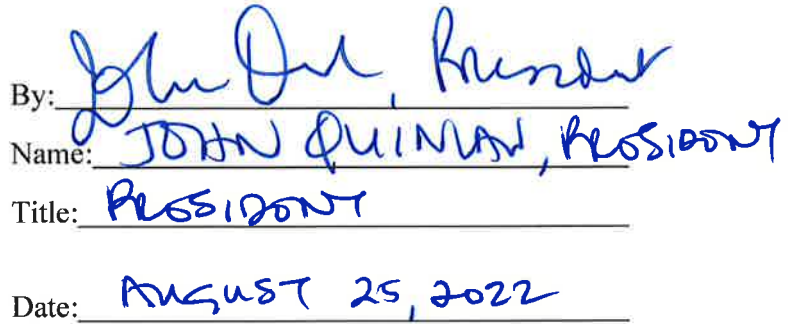 By: John Qul, President
Name: JOHN QUINLAN, PRESIDENT
Title: PRESIDENT
Date: AUGUST 25, 2022